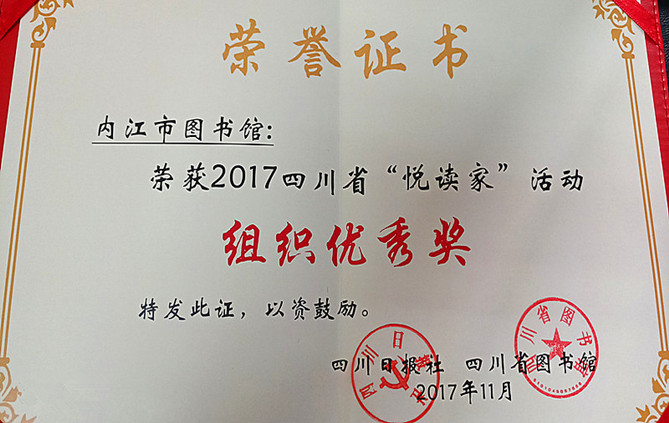 荣誉证书
内江市图书馆:
荣获2017四川省“悦读家”活动
组织优秀奖
特发此证，以资鼓励。
四川日报社 四川省图书馆
2017年11月